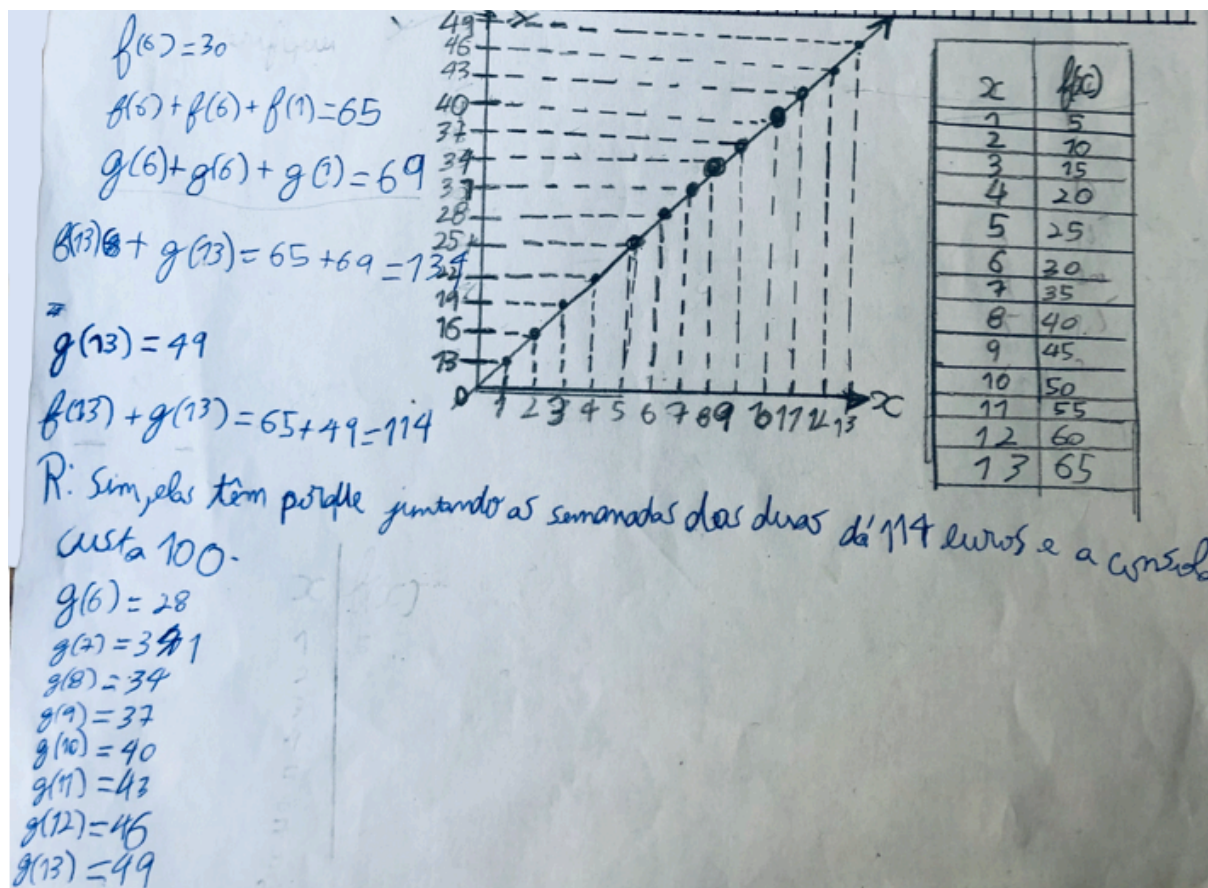 f(6)=30
f(6)+f(6)+f(1)=65
g(6)+g(6)+g(1)=69
g(13)=65+69=134
g(13)=49
f(13)+g(13)=65+49=114
R: Sim, elas têm porque juntando as semanadas das duas dá 114 euros e a consola
custa 100.
g(6)=28
g(7)=31
g(8)=34
g(9)=37
g(10)=40
g(11)=43
g(12)=46
g(13)=49
49
46
43
40
37
34
31
28
25
22
19
16
13
0 1 2 3 4 5 6 7 8 9 10 11 12 13 x
x f(x)
1 5
2 10
3 15
4 20
5 25
6 30
7 35
8 40
9 45
10 50
11 55
12 60
13 65